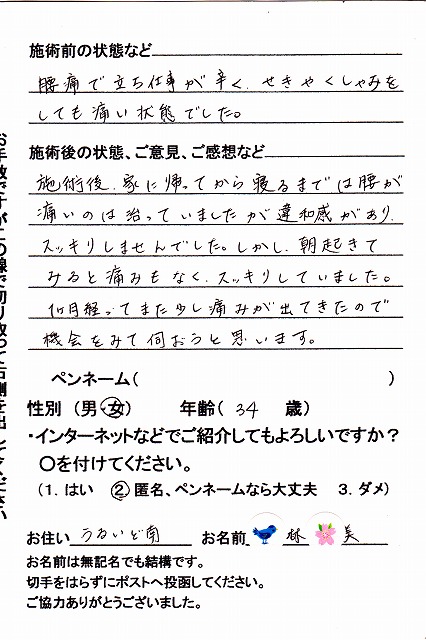 施術前の状態など
腰痛で立ち仕事が辛く、せきやくしゃみを
しても痛い状態でした。
施術後の状態、ご意見、ご感想など
施術後、家に帰ってから寝るまでは腰が
痛いのは治っていましたが違和感があり、
スッキリしませんでした。しかし、朝起きて
みると痛みもなく、スッキリしていました。
経ってまた少し痛みが出てきたので
機会をみて伺おうと思います。
ペンネーム( )
性別 (男・女) 年齢( 34 歳)
・インターネットなどでご紹介してもよろしいですか?
〇を付けてください。
(1. はい ② 匿名、ペンネームなら大丈夫 3. ダメ)
お住い うるいど南 お名前 林 美
お名前は無記名でも結構です。
切手をはらずにポストへ投函してください。
ご協力ありがとうございました。
お手数ですがこの線で切り取って右側を出してください